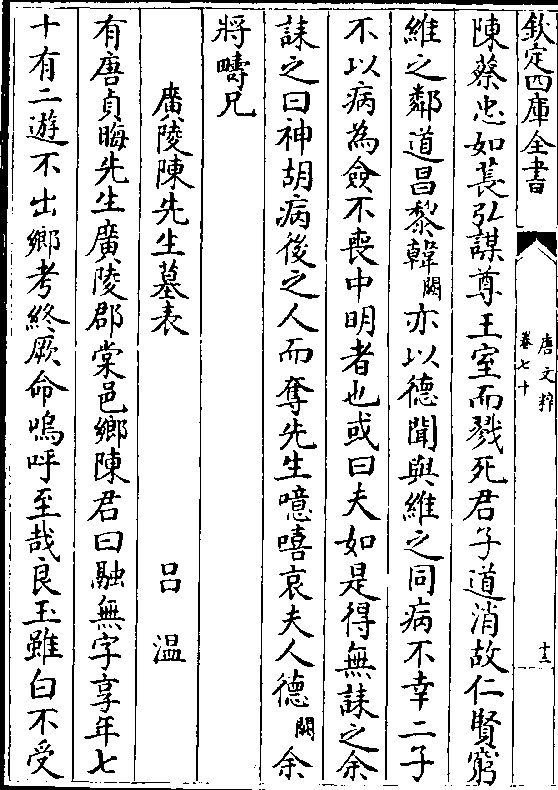 欽定四庫全書
唐文粹
卷七十
十三
陳蔡忠如萇弘謀尊王室而戮死君子道消故仁賢窮
維之鄰道昌黎韓闕亦以德聞與維之同病不幸二子
不以病為僉不喪中明者也或曰夫如是得無誄之余
誄之曰神胡病後之人而奪先生噫嘻哀夫人德闕余
將疇兄
廣陵陳先生墓表
吕溫
有唐貞晦先生廣陵郡棠邑鄉陳君曰融無字享年七
十有二遊不出鄉考終厥命嗚呼至哉良玉雖白不受